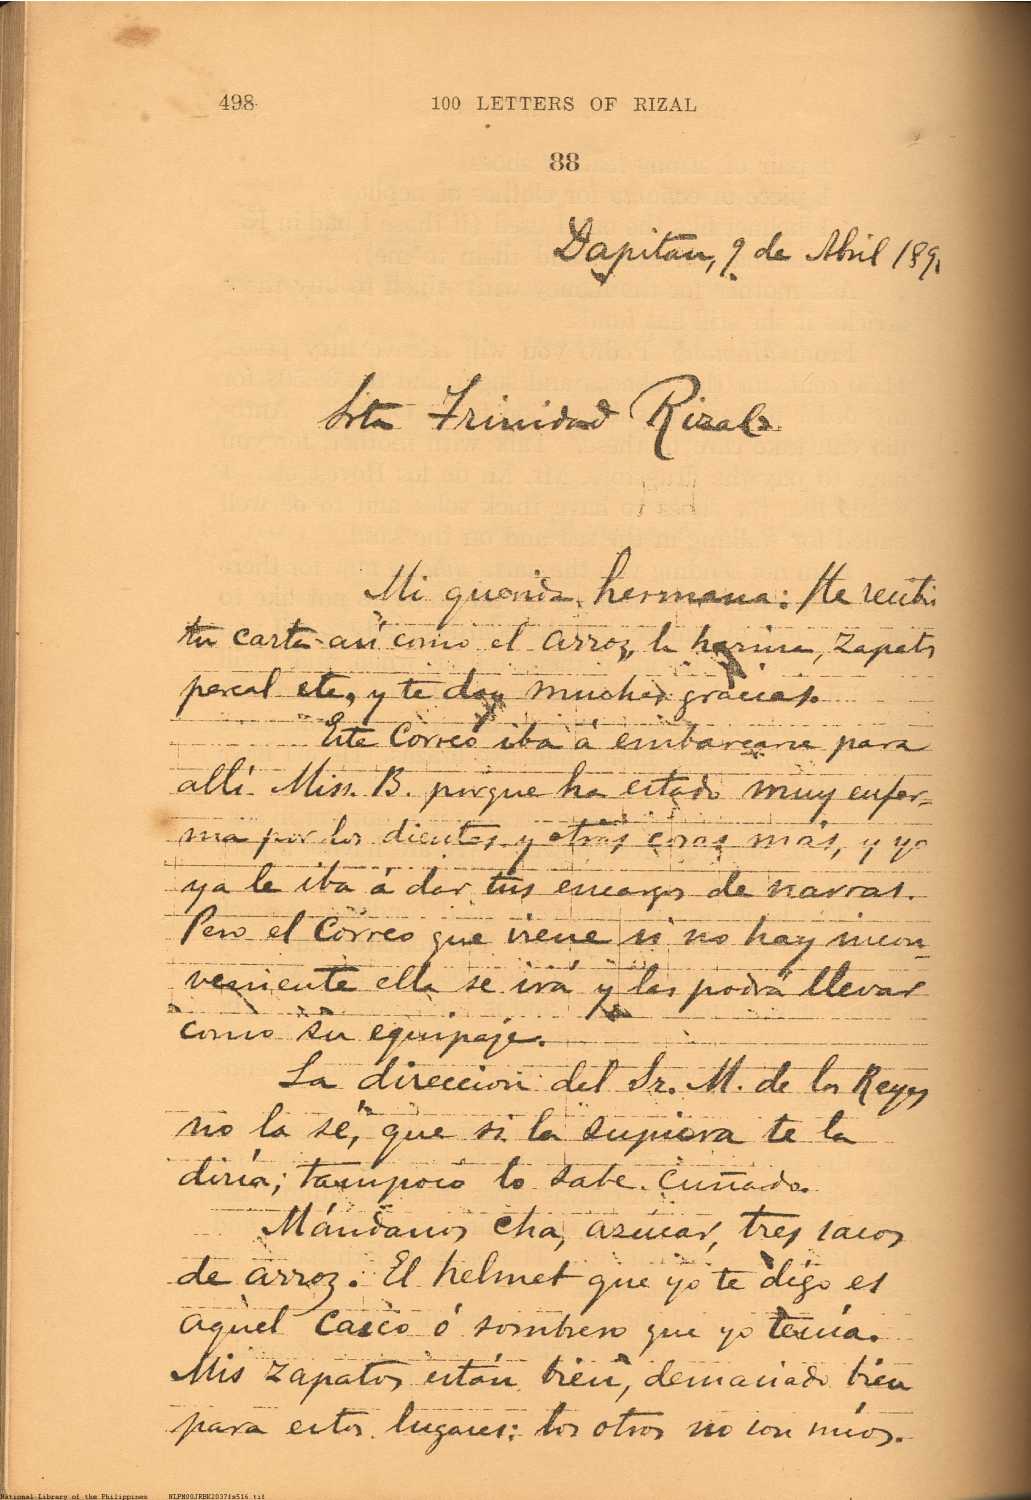 498
100 LETTERS OF RIZAL
88
Dapitan, 9 de Abril 189
Srta Trinidad Rizal.
Mi querida hermana: He recibi
tu carta así como el arroz, la harina, zapatos
percal etc, y te doy muchas gracias.
Este Correo iba á embarcarse para
allí Miss. B. porque ha estado muy enfer-
ma por los dientes y otras cosas más, y yo
ya le iba á dar tus encargos de narras.
Pero el Correo que viene si no hay incon-
veniente ella se irá y las podrá llevar
como su equipaje.
La direccion del Sr. M. de los Reyes
no la sé, que si la supiera te la
diría; tampoco lo sabe Cuñado.
Mándanos cha, azucar, tres sacos
de arroz. El helmet que yo te digo es
aquel casco ó sombrero que yo tenía.
Mis zapatos están bien, demasiado bien
para estos lugares: los otros no son míos.
National Library of the Philippines NLPM00JRBK2037fs516.tif